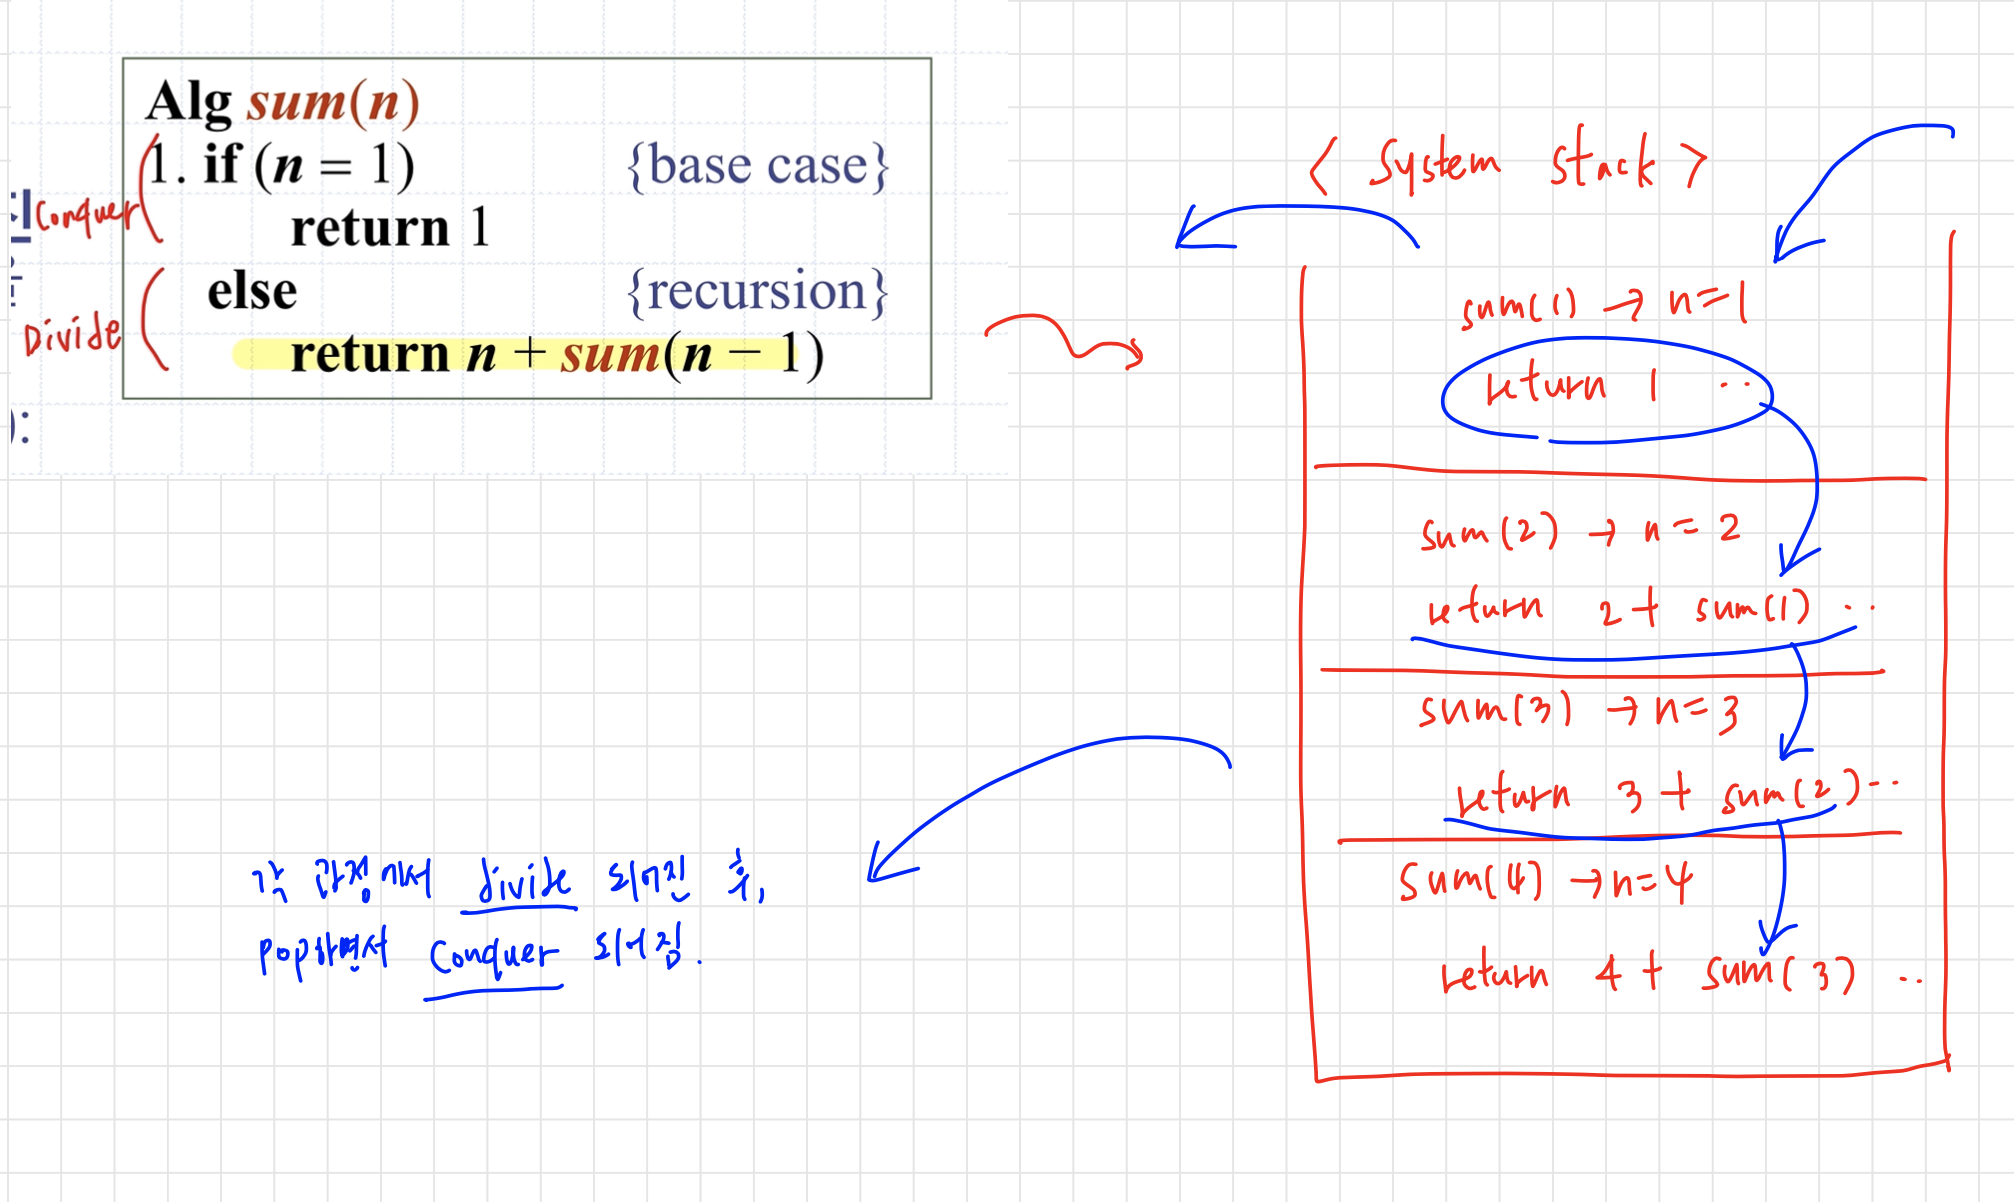 Alg sum(n)
1. if (n = 1) {base case}
return 1
else {recursion}
return n + sum(n − 1)
Conquer
Divide
):
< System Stack >
sum(1) → n=1
return 1 ..
sum(2) → n=2
return 2+ sum(1) ..
sum(3) → n=3
return 3 + sum(2) ..
sum(4) → n=4
return 4 + sum(3) ..
각 과정에서 divide 되어진 후,
pop하면서 Conquer 되어짐.